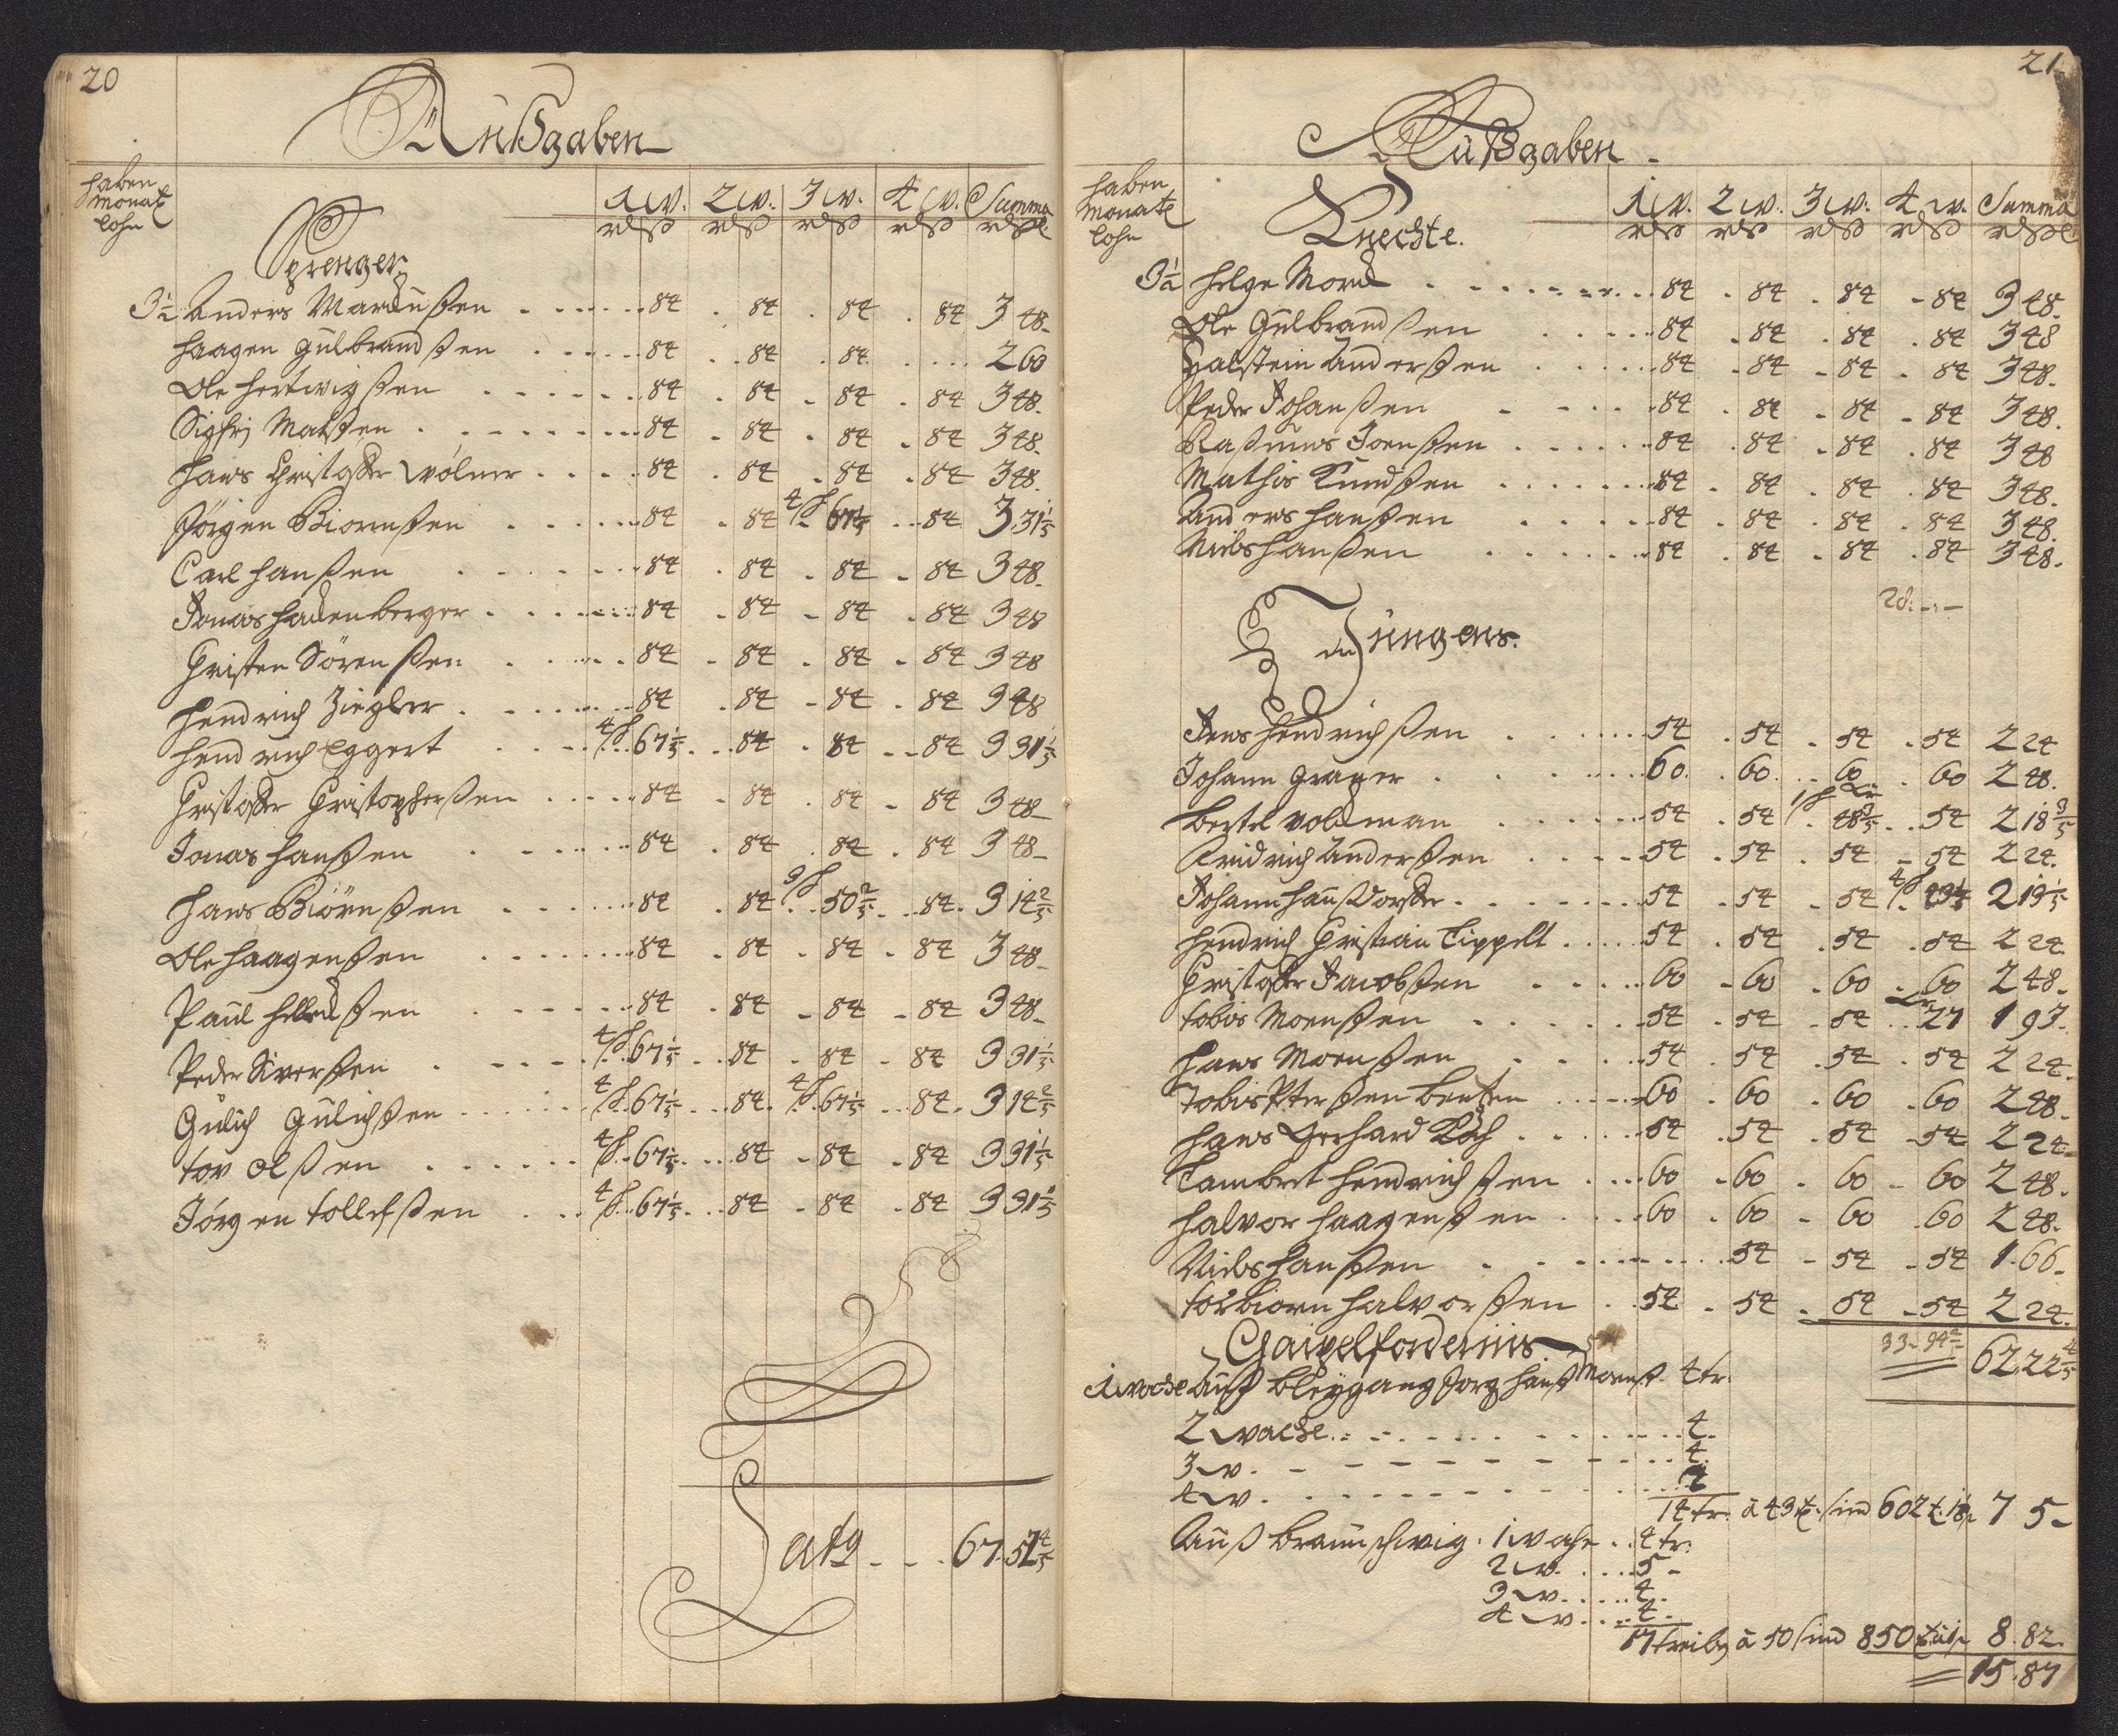 20
Außgaben
haben
Monat
lohn
1 W. 2 W. 3 W. 4 W. Summa
Sprenger
3½ Anders Marcußen 84 84 84 84 3 48
Haagen Gulbrandßen 84 84 84 2 60
Ole Hertwigßen 84 84 84 84 3 48
Sigfrj Matßen 84 84 84 84 3 48
Hans Christoffer Wólner 84 84 84 84 3 48
Jörgen Biornßen 84 84 4/s 67 1/5 84 3 31 1/5
Carl Hanßen 84 84 84 84 3 48
Jonas Hadenberger 84 84 84 84 3 48
Christen Sörenßen 84 84 84 84 3 48
Hendrich Ziegler 84 84 84 84 3 48
Hendrich Eggert 4/s 67 1/5 84 84 84 3 31 1/5
Christoffer Christopherßen 84 84 84 84 3 48
Jonas Hanßen 84 84 84 84 3 48
Hans Biörnßen 84 84 50 2/5 84 3 14 2/5
Ole Haagenßen 84 84 84 84 3 48
Paul 84 84 84 84 3 48
Peder Siverßen 4/s 67 1/5 84 84 84 3 31 1/5
Gulich Gulichßen 4/s 67 1/5 84 4/s 67 1/5 84 3 14 2/5
Tov Olßen 4/s 67 1/5 84 84 84 3 31 1/5
Jörgen Tollefßen 4/s 67 1/5 84 84 84 3 31 1/5
Latg 67 4/5
21
Außgaben
haben
Monat
lohn
1 W. 2 W. 3 W. 4 W. Summa
Knechte.
3½ Helge Mord 84 84 84 84 3 48
Ole Gulbrandßen 84 84 84 84 3 48
Halstein Anderßen 84 84 84 84 3 48
Peder Johanßen 84 84 84 84 3 48
Raßmus Joenßen 84 84 84 84 3 48
Mathis Knudßen 84 84 84 84 3 48
Anders Hanßen 84 84 84 84 3 48
Niels Hanßen 84 84 84 84 3 48
28 - -
Jungens.
Jens Hendrichßen 54 54 54 54 2 24
Johann Grager 60 60 60 60 2 48
Bertel Voldman 54 54 48 3/5 54 2 18 3/5
Fridrich Anderßen 54 54 54 54 2 24
Johann 54 54 54 4/s 43 1/5 2 13 1/5
Hendrich Christian Tippelt 54 54 54 54 2 24
Christoffer Jacobßen 60 60 60 60 2 48
Tobis Monßen 54 54 54 27 1 93
Hans Monßen 54 54 54 54 2 24
Tobis 60 60 60 60 2 48
Hans Gerhard Koch 54 54 54 54 2 24
Lambret Hendrichßen 60 60 60 60 2 48
Halvor Haagenßen 60 60 60 60 2 48
Niels Hanßen 54 54 54 1 66
Torbiorn Halvorßen 54 54 54 54 2 24
33 94 4/5 62 22 4/5
Gaipelforderniis
1 woche Auf Bleygang 4 tr.
2 woche 4
3 w. 4
4 w.
14 tr. a 43 sind 602 7 5
Auß Braunschwig 1 woche 4 tr.
2 w. 5
3 w. 4
4 w. 4
17 treib a 50 sind 850 8 82
15 87